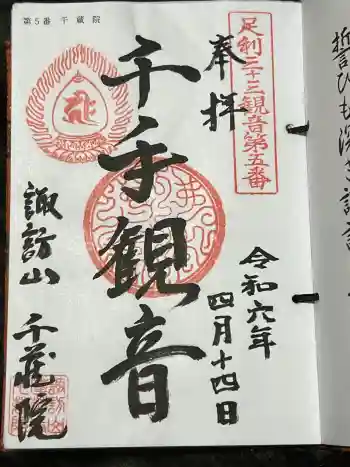 第5番 千蔵院
足利三十三観音第五番
奉拝
令和六年
四月十四日
千手観音
諏訪山 千蔵院
誓ひも深き諏訪